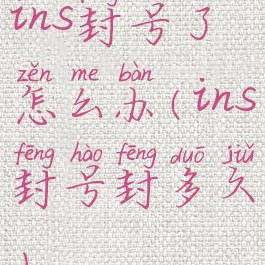 ins封号了
zěn me bàn
怎么办(ins
fēng hào fēng duō jiǔ
封号封多久
)